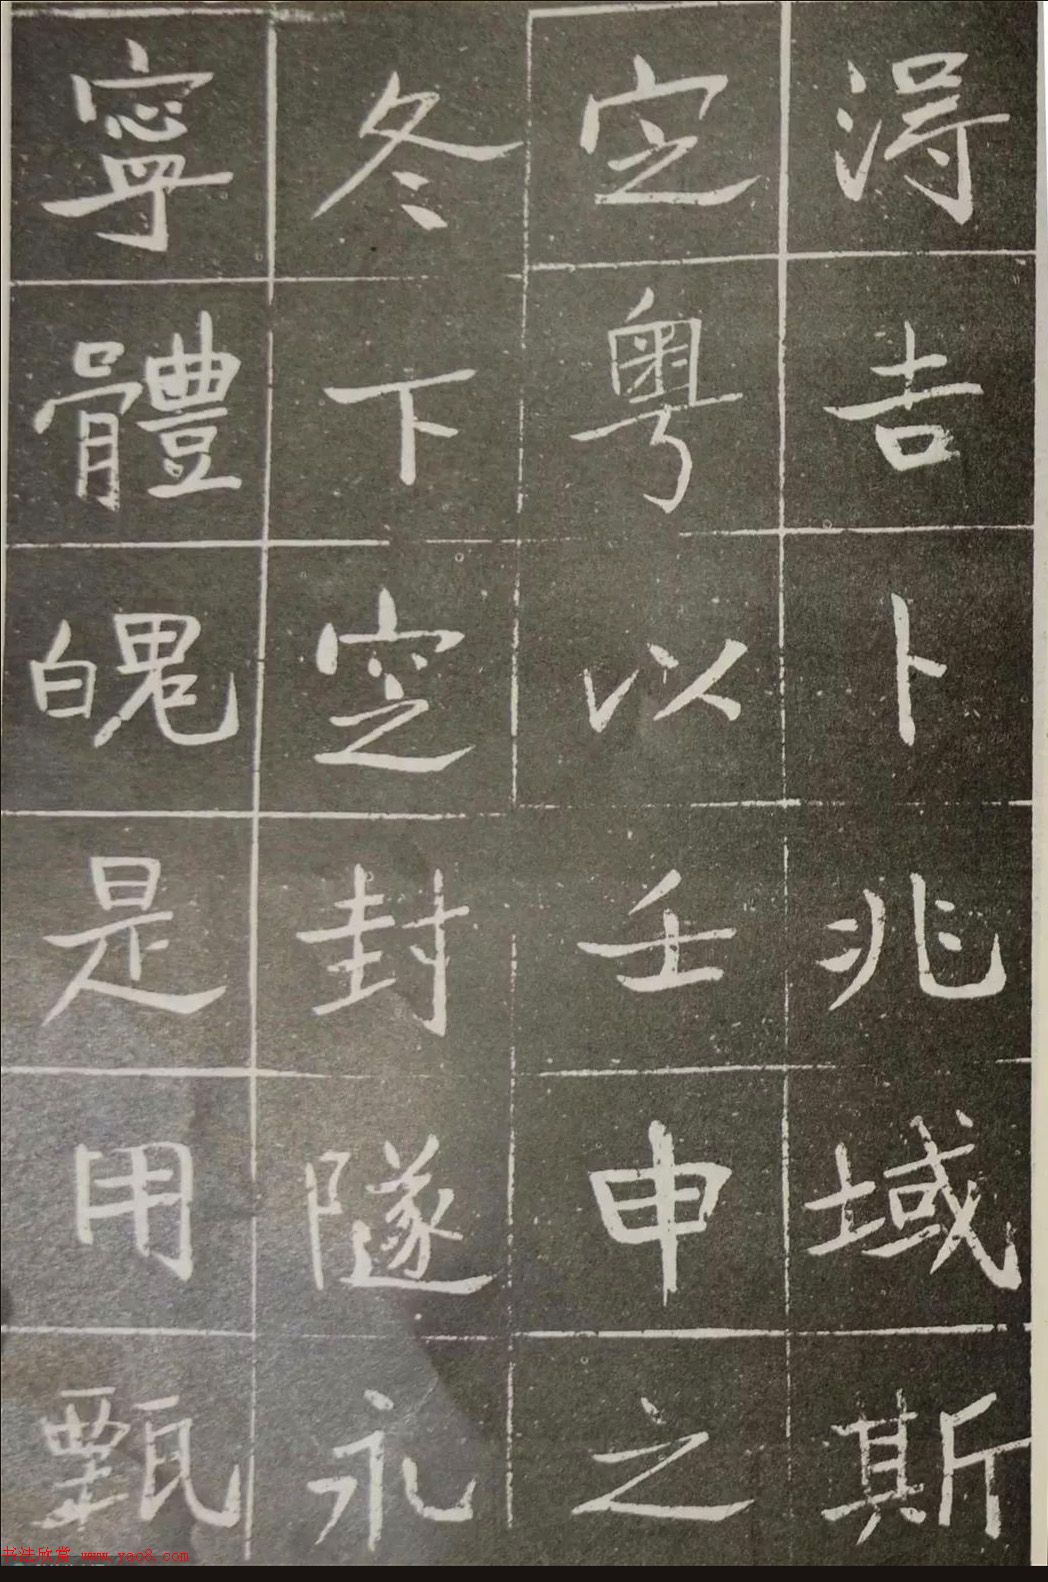 淂吉卜兆域斯
定粤以壬申之
冬下窆封隧永
寧體魄是用甄
书法欣赏 www.yac8.com